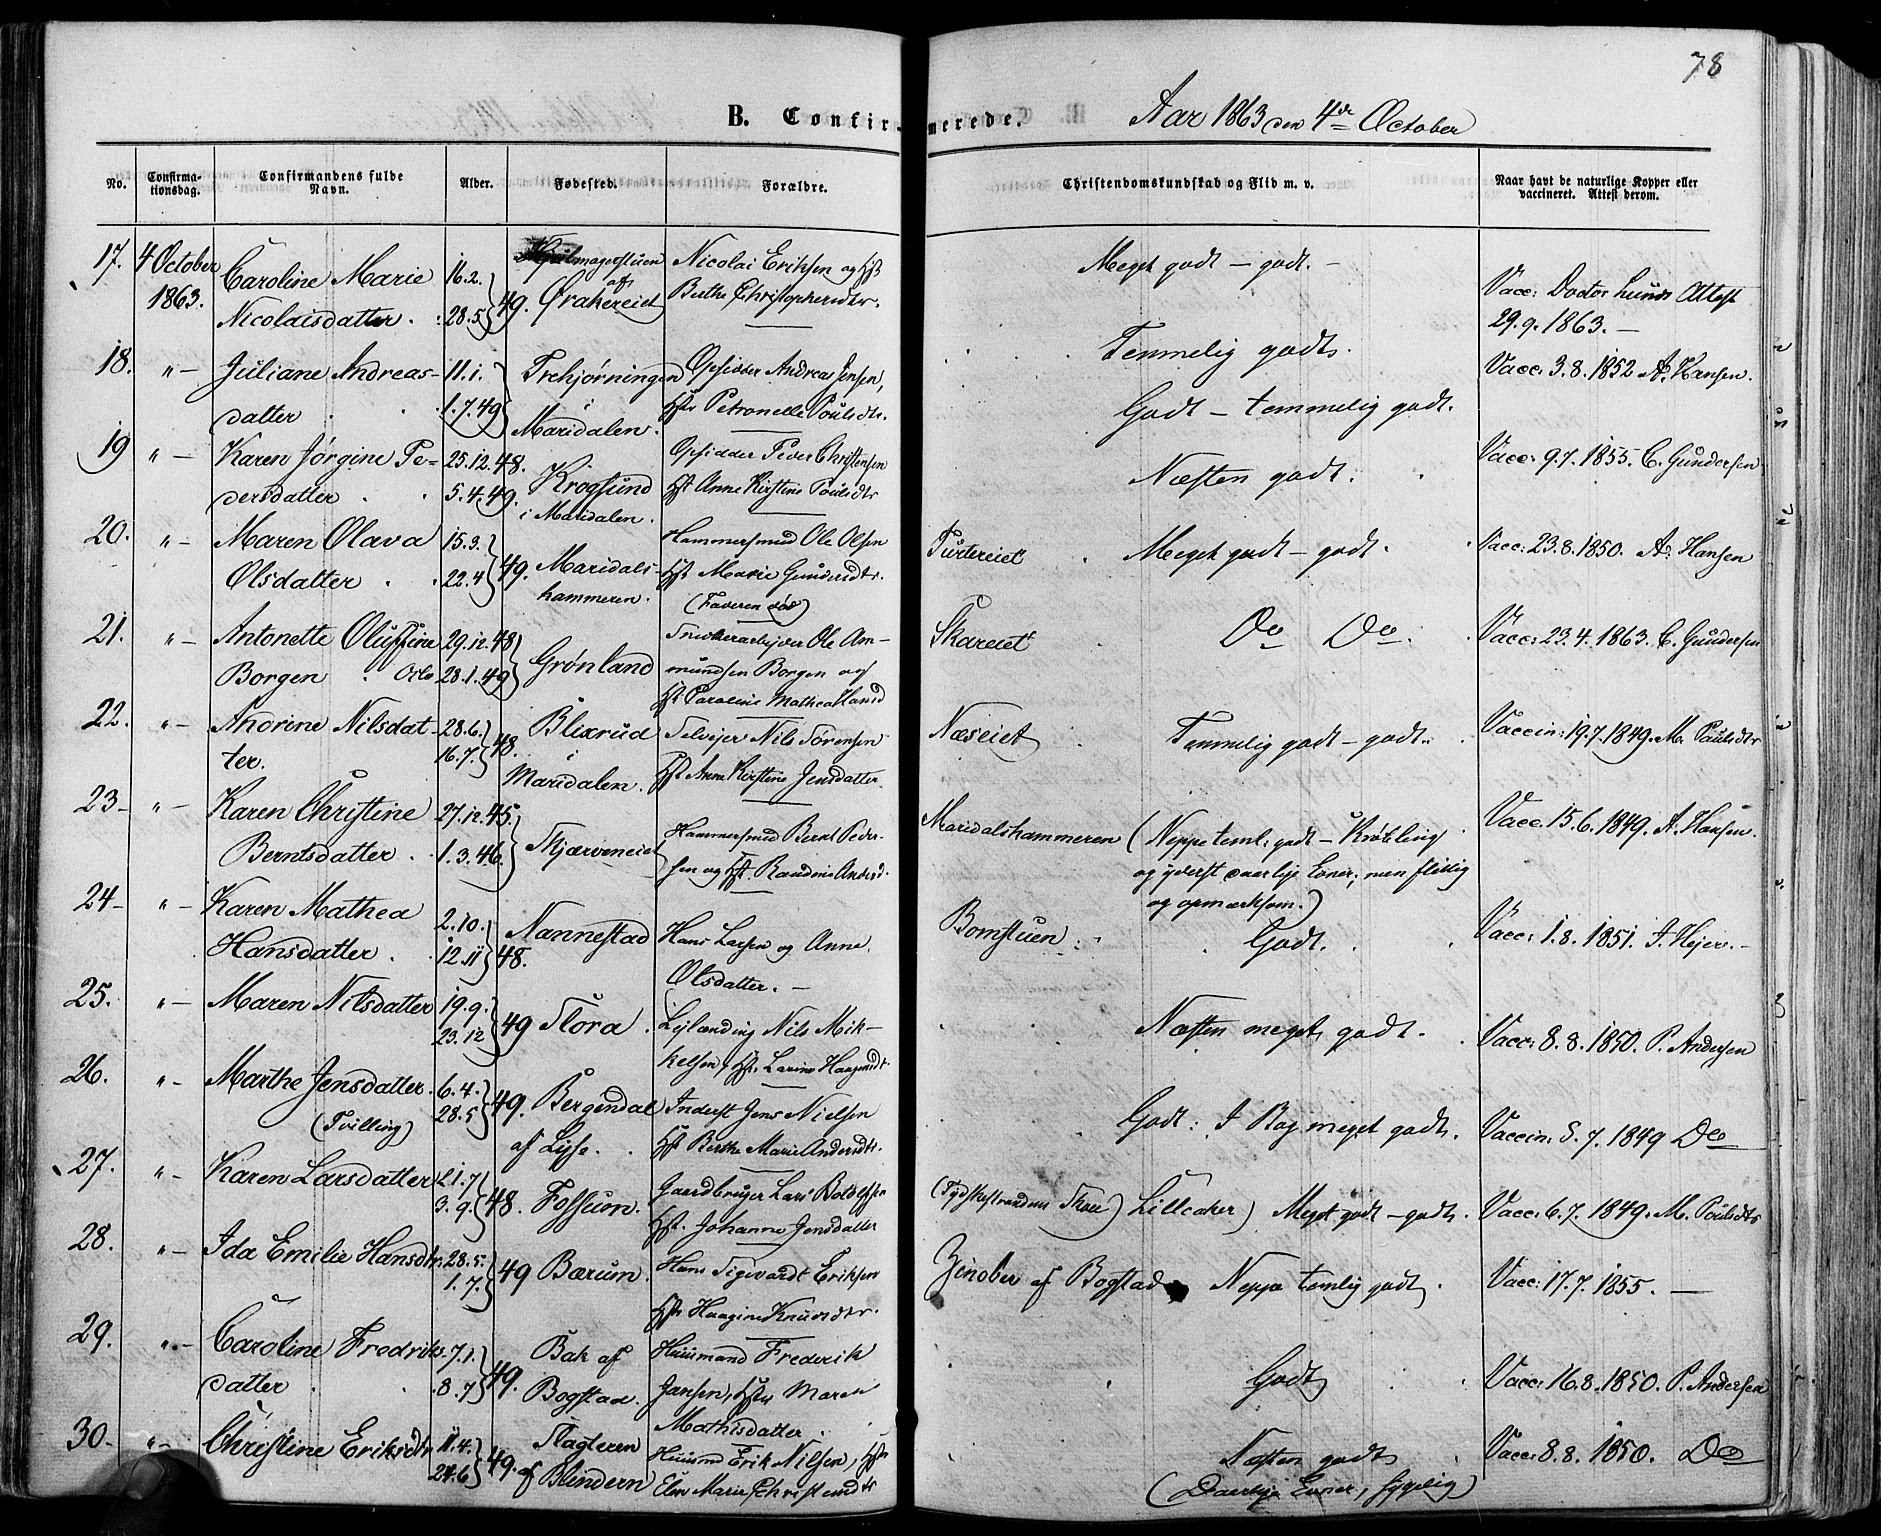 78
B. Confirmerede. Aar 1863 den 4de October
No.
Confirmationsdag.
Confirmandens fulde Navn.
Alder.
Fødested.
Forældre.
Christendomskundskab og Flid m. v.
Naar havt de naturlige Kopper eller vaccineret. Attest derom.
17. 4 October 1863.
Caroline Marie
Nicolaisdatter.
16.2.
28.5 49.
af
Ørakereiet
Nicolai Eriksen og Hst
Berthe Christophersdtr.
Meget godt – godt. –
Vacc: Doctor Lunds Attest
29.9.1863. –
18. "–
Juliane Andreas-
datter
11.1.
1.7.49
Trehjørningen
i
Maridalen.
Opsidder Andreas Jensen,
Hstr Petronelle Poulsdtr.
Temmelig godt.
Godt – temmelig godt.
Vacc: 3.8.1852 A. Hansen.
19 "–
Karen Jørgine Pe-
dersdatter
25.12.48.
5.4.49.
Krogsund
i Maridalen.
Opsidder Peder Christensen
Hst Anne Kirstine Poulsdtr
Næsten godt.
Vacc: 9.7.1855. C. Gundersen
20. "–
Maren Olava
Olsdatter
15.3.
22.4 49.
Maridals-
hammeren.
Hammersmed Ole Olsen
Hst Marie Gundersdtr.
(Faderen død)
Turtereiet
Meget godt – godt.
Vacc: 23.8.1850. A. Hansen
21. "–
Antonette Oluffine
Borgen Oslo
29.12.48
28.1.49
Grønland
Snedkerarbejder Ole Am-
mundsen Borgen og
Hst Caroline Mathea Hansd
Skareiet
Do Do.
Vacc: 23.4.1863. C. Gundersen
22. "–
Andrine Nilsdat-
ter.
28.6.
16.7. 48.
Blixrud
i
Maridalen.
Selvejer Nils Sørensen
Hst Anne Kirstine Jensdatter
Næseiet
Temmelig godt – godt.
Vaccin: 19.7.1849. M. Poulsdtr
23 "–
Karen Christine
Berntsdatter
27.12.45.
1.3.46.
Skjærveneiet
Hammersmed Bernt Peder-
sen og Hst Randine Andersd.
Maridalshammeren
(Neppe teml: godt – Krøbling
og yderst daarlige Evner; men flittig
og opmærksom.)
Vacc. 15.6.1849. A. Hansen.
24 "–
Karen Mathea
Hansdatter
2.10.
12.11 48.
Nannestad
Hans Larsen og Anne
Olsdatter. –
Bomstuen
Godt.
Vacc: 1.8.1851. J. Hejer. –
25. "–
Maren Nilsdatter
19.9.
23.12 49
Flora
Lejlænding Nils Mik-
kelsen, Hst. Larine Haagensdt
Næsten meget godt.
Vacc: 8.8.1850. P. Andersen
26. "–
Marthe Jensdatter.
(Tvilling)
6.4.
28.5 49.
Bergendal
af Lyse.
Inderst Jens Nielsen
Hst Berthe Marie Andersdtr.
Godt: I Bog meget godt.
Vaccin: 5.7.1849 Do
27. "–
Karen Larsdatter
21.7
3.9. 48.
Fossum.
Gaardbruger Lars
Hst. Johanne Jensdatter
Lilleaker) Meget godt – godt.
Vacc: 6.7.1849. M. Poulsdtr
28. "–
Ida Emilie Hansdtr.
28.5.
1.7. 49
Bærum.
Hans Sigvardt Eriksen
Hstr Haagine Knudsdtr.
Zinober af Bogstad
Neppe temlig godt
Vacc: 17.7.1855. –
29. "–
Caroline Fredriks-
datter
7.1.
8.7 49.
Bak af
Bogstad.
Huusmand Frederik
Jansen, Hstr Maren
Mathisdatter
Godt
Vacc: 16.8.1850. P. Andersen
30. "–
Christine Eriksdtr
11.4.
24.6 49.
Slagteren
af Blindern
Huusmd Erik Nilsen, Hstr
Elen Marie Christensdtr
Næsten godt
(Daarlige Evner, sygelig)
Vacc: 8.8.1850. Do